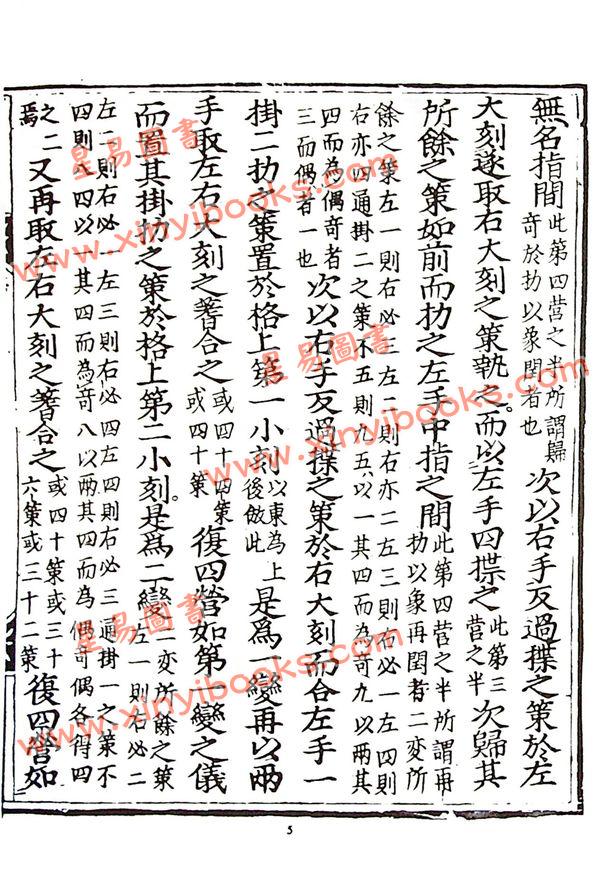 無名指間此第四營之半所謂歸奇於扐以象閏者也次以右手反過揲之策於左
大刻遂取右大刻之策執之。而以左手四揲之此第三營之半次歸其
所餘之策如前而扐之左手中指之間此第四營之半所謂再扐以象再閏者二变所
餘之策左一則右必三左二則右亦二左三則右必一左四則
右亦四通掛二之策不五則九五以一其四而為奇九以兩其
四而為偶奇者三而偶者一也次以右手反過揲之策於右大刻而合左手一
掛二扐之策置於格上第一小刻以東為上後倣此是爲一變再以兩
手取左右大刻之蓍合之或四十四策或四十策復四營如第一變之儀
而置其掛扐之策於格上第二小刻。是爲二變二变所餘之策左一則右必二
左二則右必一左三則右必四左四則右必三通掛一之策不
四則八四以一其四而為奇八以兩其四而為偶奇偶各得四
之二焉又再取左右大刻之蓍合之或四十策或三十六策或三十二策復四營如
5
皇易圖書
www.xinyibooks.com
皇易圖書
www.xinyibooks.com
皇易圖書
www.xinyibooks.com